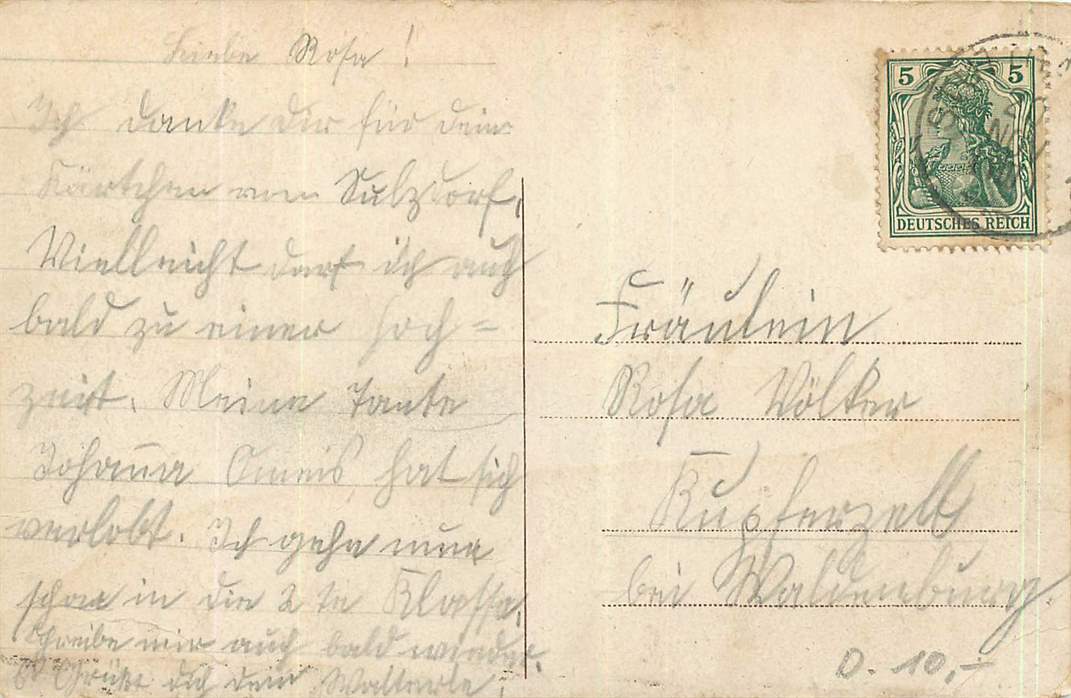 Liebe Rosa!
Ich danke dir für dein
Kärtchen von Sulzdorf,
Vielleicht darf ich auch
bald zu einer Hoch=
zeit. Meine Tante
Johanna Omeis hat sich
verlobt. Ich gehe nun
schon in die 2 te Klasse.
Schreibe mir auch bald wieder.
Es Grüßt dich dein Walterle.
5 5
DEUTSCHES REICH
Fräulein
Rosa Völker
Kupferzell
bei Waldenburg.
D. 10,-